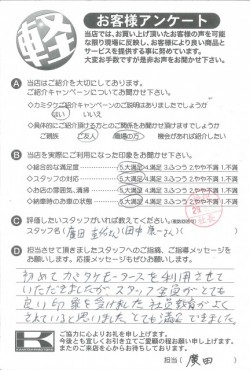 軽
お客様アンケート
当店では、お買い上げ頂いたお客様の声を可能
な限り現場に反映し、お客様により良い商品と
サービスを提供する事に努めています。
大変お手数ですが是非お声をお聞かせ下さい。
A 当店はご紹介を大切にしております。
ご紹介キャンペーンについてお聞かせ下さい。
◇カミタケご紹介キャンペーンのご説明はありましたでしょうか
はい いいえ
◇具体的にご紹介頂ける方とのご関係をお聞かせ頂けますでしょうか
ご親族 ご友人 職場の方 機会があれば紹介したい
B 当店を実際にご利用になった印象をお聞かせ下さい。
◇総合的な満足度 5.大満足 4.満足 3.ふつう 2.やや不満 1.不満
◇スタッフの対応 5.大満足 4.満足 3.ふつう 2.やや不満 1.不満
◇お店の雰囲気、清掃 5.大満足 4.満足 3.ふつう 2.やや不満 1.不満
◇納車時のお車の状態 5.大満足 4.満足 3.ふつう 2.やや不満 1.不満
C 評価したいスタッフがいれば教えてください。
スタッフ名( 廣田 さん)(田中 康一さん)
D 担当させて頂きましたスタッフへのご指摘、ご指導メッセージを
お願いします。応援メッセージもぜひお願いします。
初めてカミタケモータースを利用させて
いただきましたがスタッフ全員がとても
良い印象を受けれた 社員教育がよく
されていると思いました とても満足できました。
ご協力に心よりお礼を申し上げます。
今後とも宜しくお引き立てご愛顧の程お願い申し上げます。
またのご来店を心からお待ちしております。
担当( 廣田 )